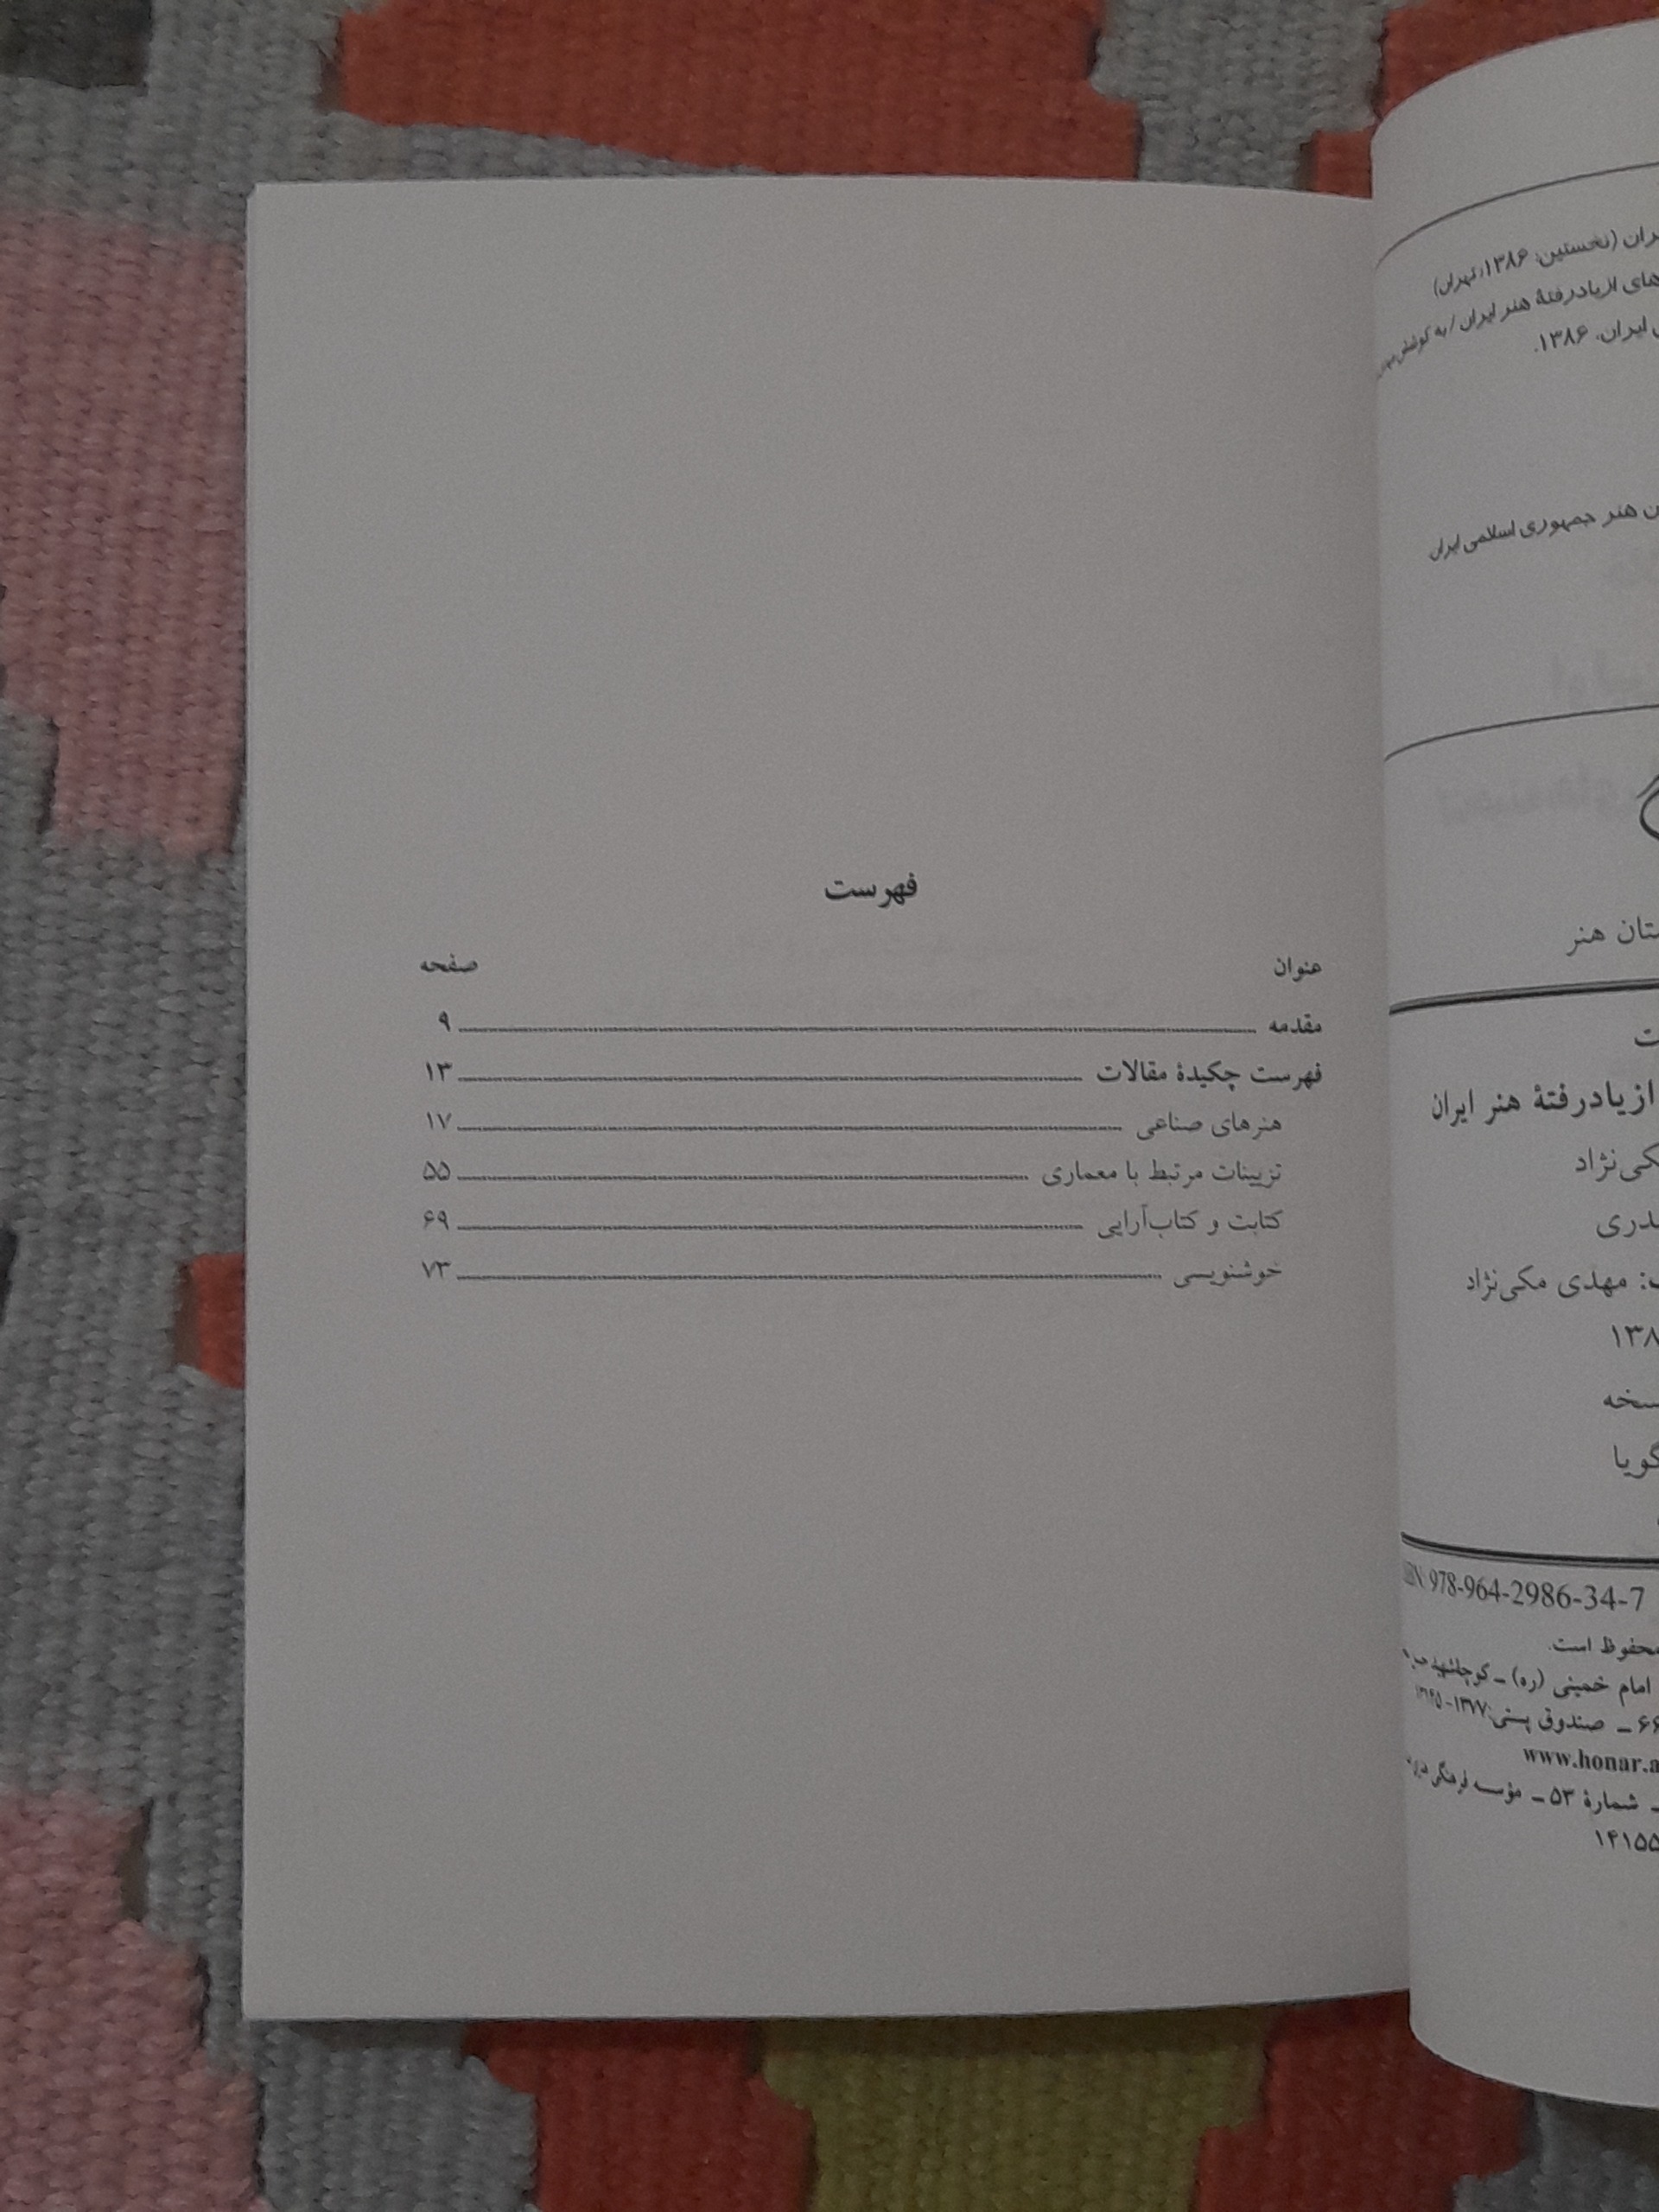 فهرست
عنوان صفحه
مقدمه ۹
فهرست چکیدهٔ مقالات ۱۳
هنرهای صناعی ۱۷
تزیینات مرتبط با معماری ۵۵
کتابت و کتاب‌آرایی ۶۹
خوشنویسی ۷۳
(نخستین: ۱۳۸۶: تهران)
های ازیادرفتهٔ هنر ایران / به کوشش
ایران، ۱۳۸۶.
هنر جمهوری اسلامی ایران
هنر
ازیادرفتهٔ هنر ایران
مهدی مکی‌نژاد
978-964-2986-34-7
محفوظ است.
امام خمینی (ره) ـ
ـ صندوق پستی: ۱۳۷۷-۱۳۱۴۵
www.honar.a
ـ شمارهٔ ۵۳ ـ مؤسسه فرهنگی